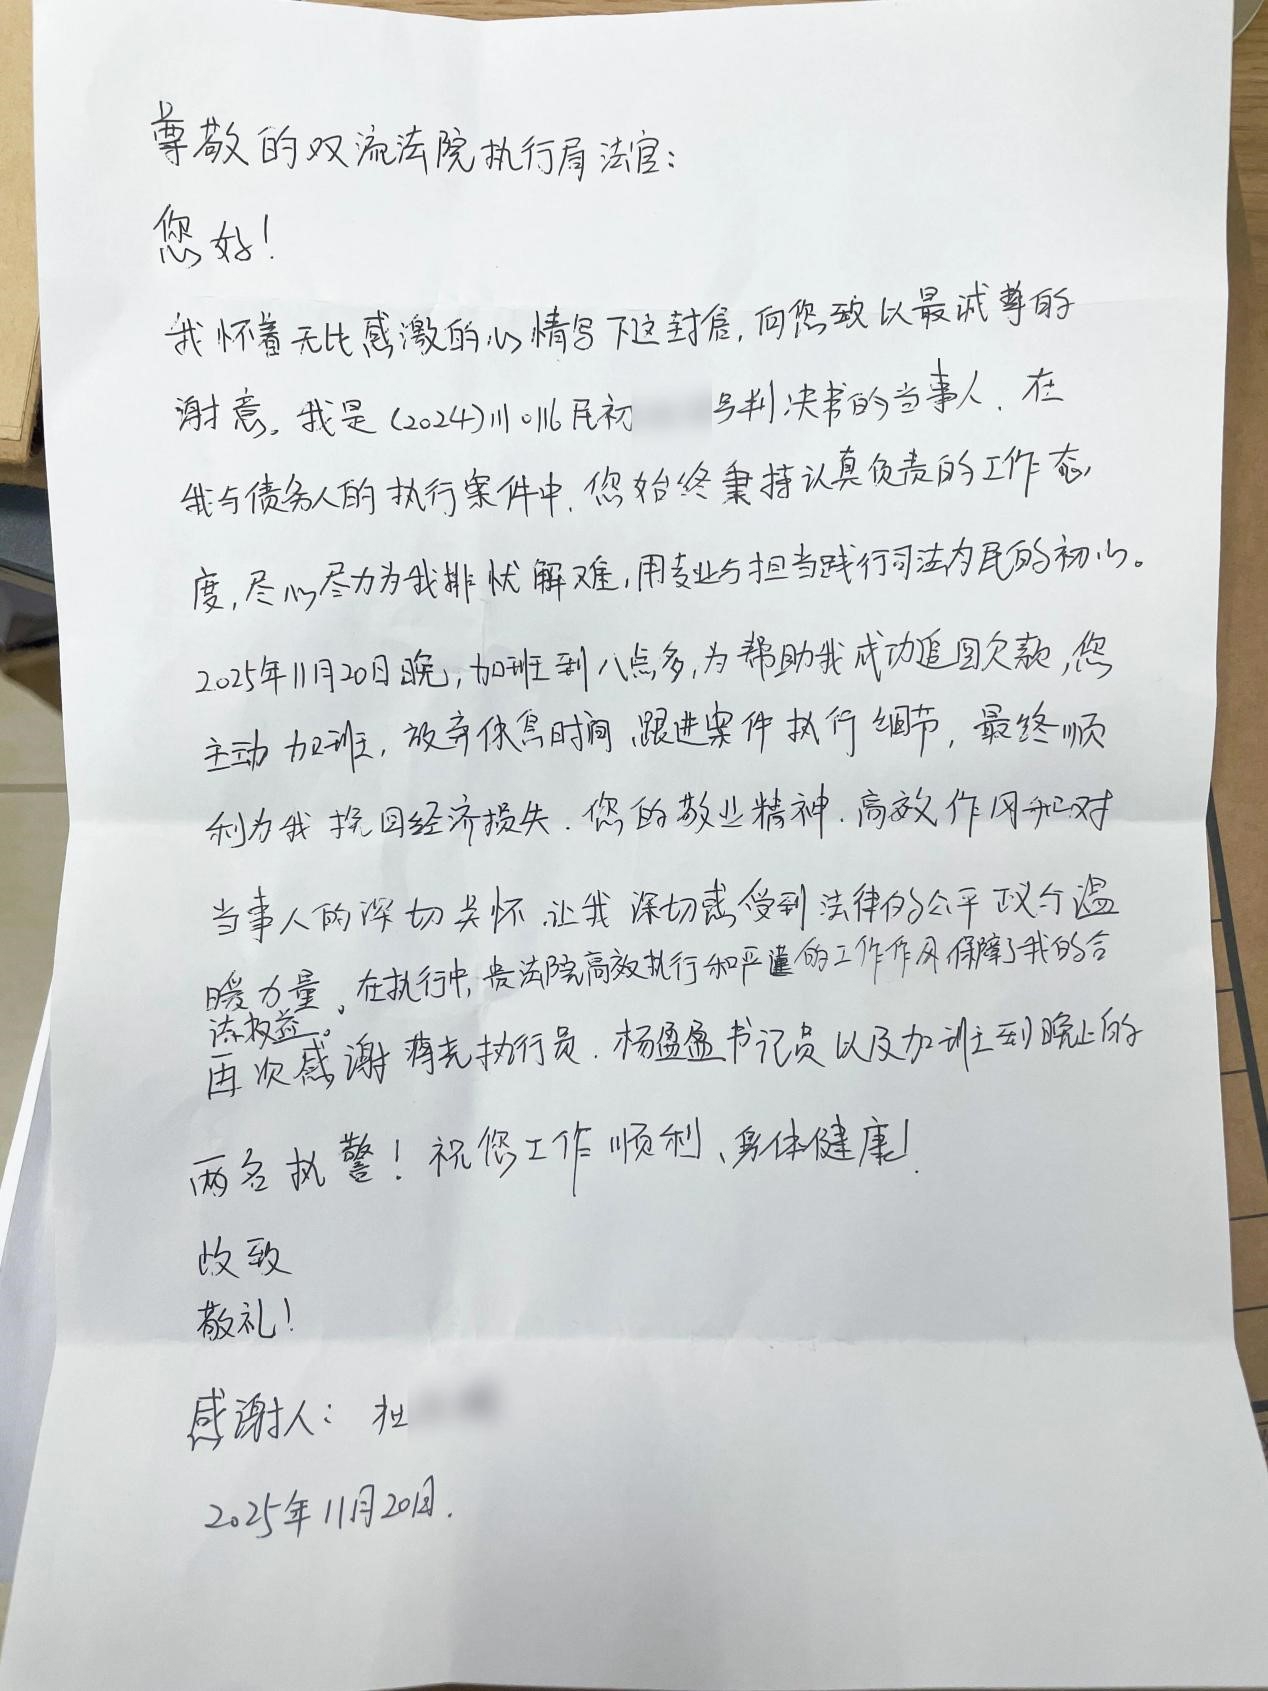 尊敬的双流法院执行局法官：
您好！
我怀着无比感激的心情写下这封信，向您致以最诚尊的
谢意。我是(2024)川0116民初号判决书的当事人．在
我与债务人的执行案件中．您始终秉持认真负责的工作态
度，尽心尽力为我排忧解难，用专业与担当践行司法为民的初心。
2025年11月20日晚，加班到八点多，为帮助我成功追回欠款，您
主动加班，放弃休息时间、跟进案件执行细节，最终顺
利为我挽回经济损失．您的敬业精神．高效作风和对
当事人的深切关怀．让我深切感受到法律的公平正义与温
暖力量。在执行中，贵法院高效执行和严谨的工作作风保障了我的合
法权益。
再次感谢蒋尧执行员．杨盈盈书记员以及加班到晚上的
两名执警！祝您工作顺利、身体健康！
此致
敬礼！
感谢人：
2025年11月20日．